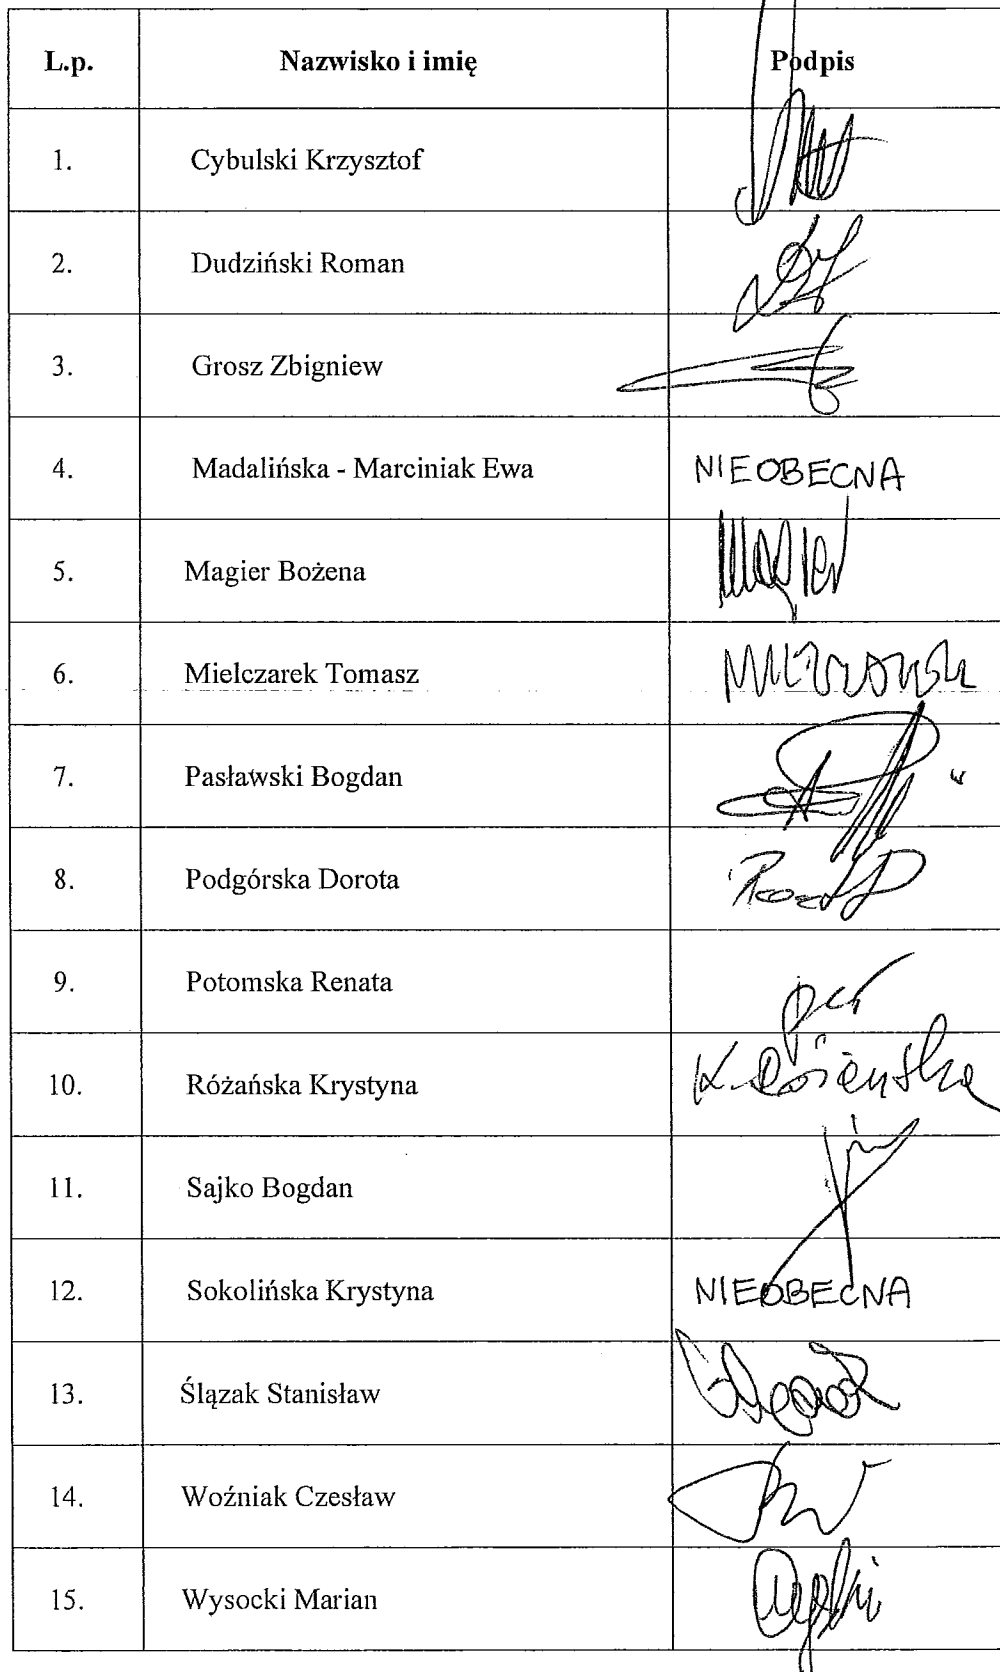 L.p. Nazwisko i imię Podpis
1. Cybulski Krzysztof
2. Dudziński Roman
3. Grosz Zbigniew
4. Madalińska - Marciniak Ewa NIEOBECNA
5. Magier Bożena Magier
6. Mielczarek Tomasz
7. Pasławski Bogdan
8. Podgórska Dorota
9. Potomska Renata
10. Różańska Krystyna K. Różańska
11. Sajko Bogdan
12. Sokolińska Krystyna NIEOBECNA
13. Ślązak Stanisław
14. Woźniak Czesław
15. Wysocki Marian